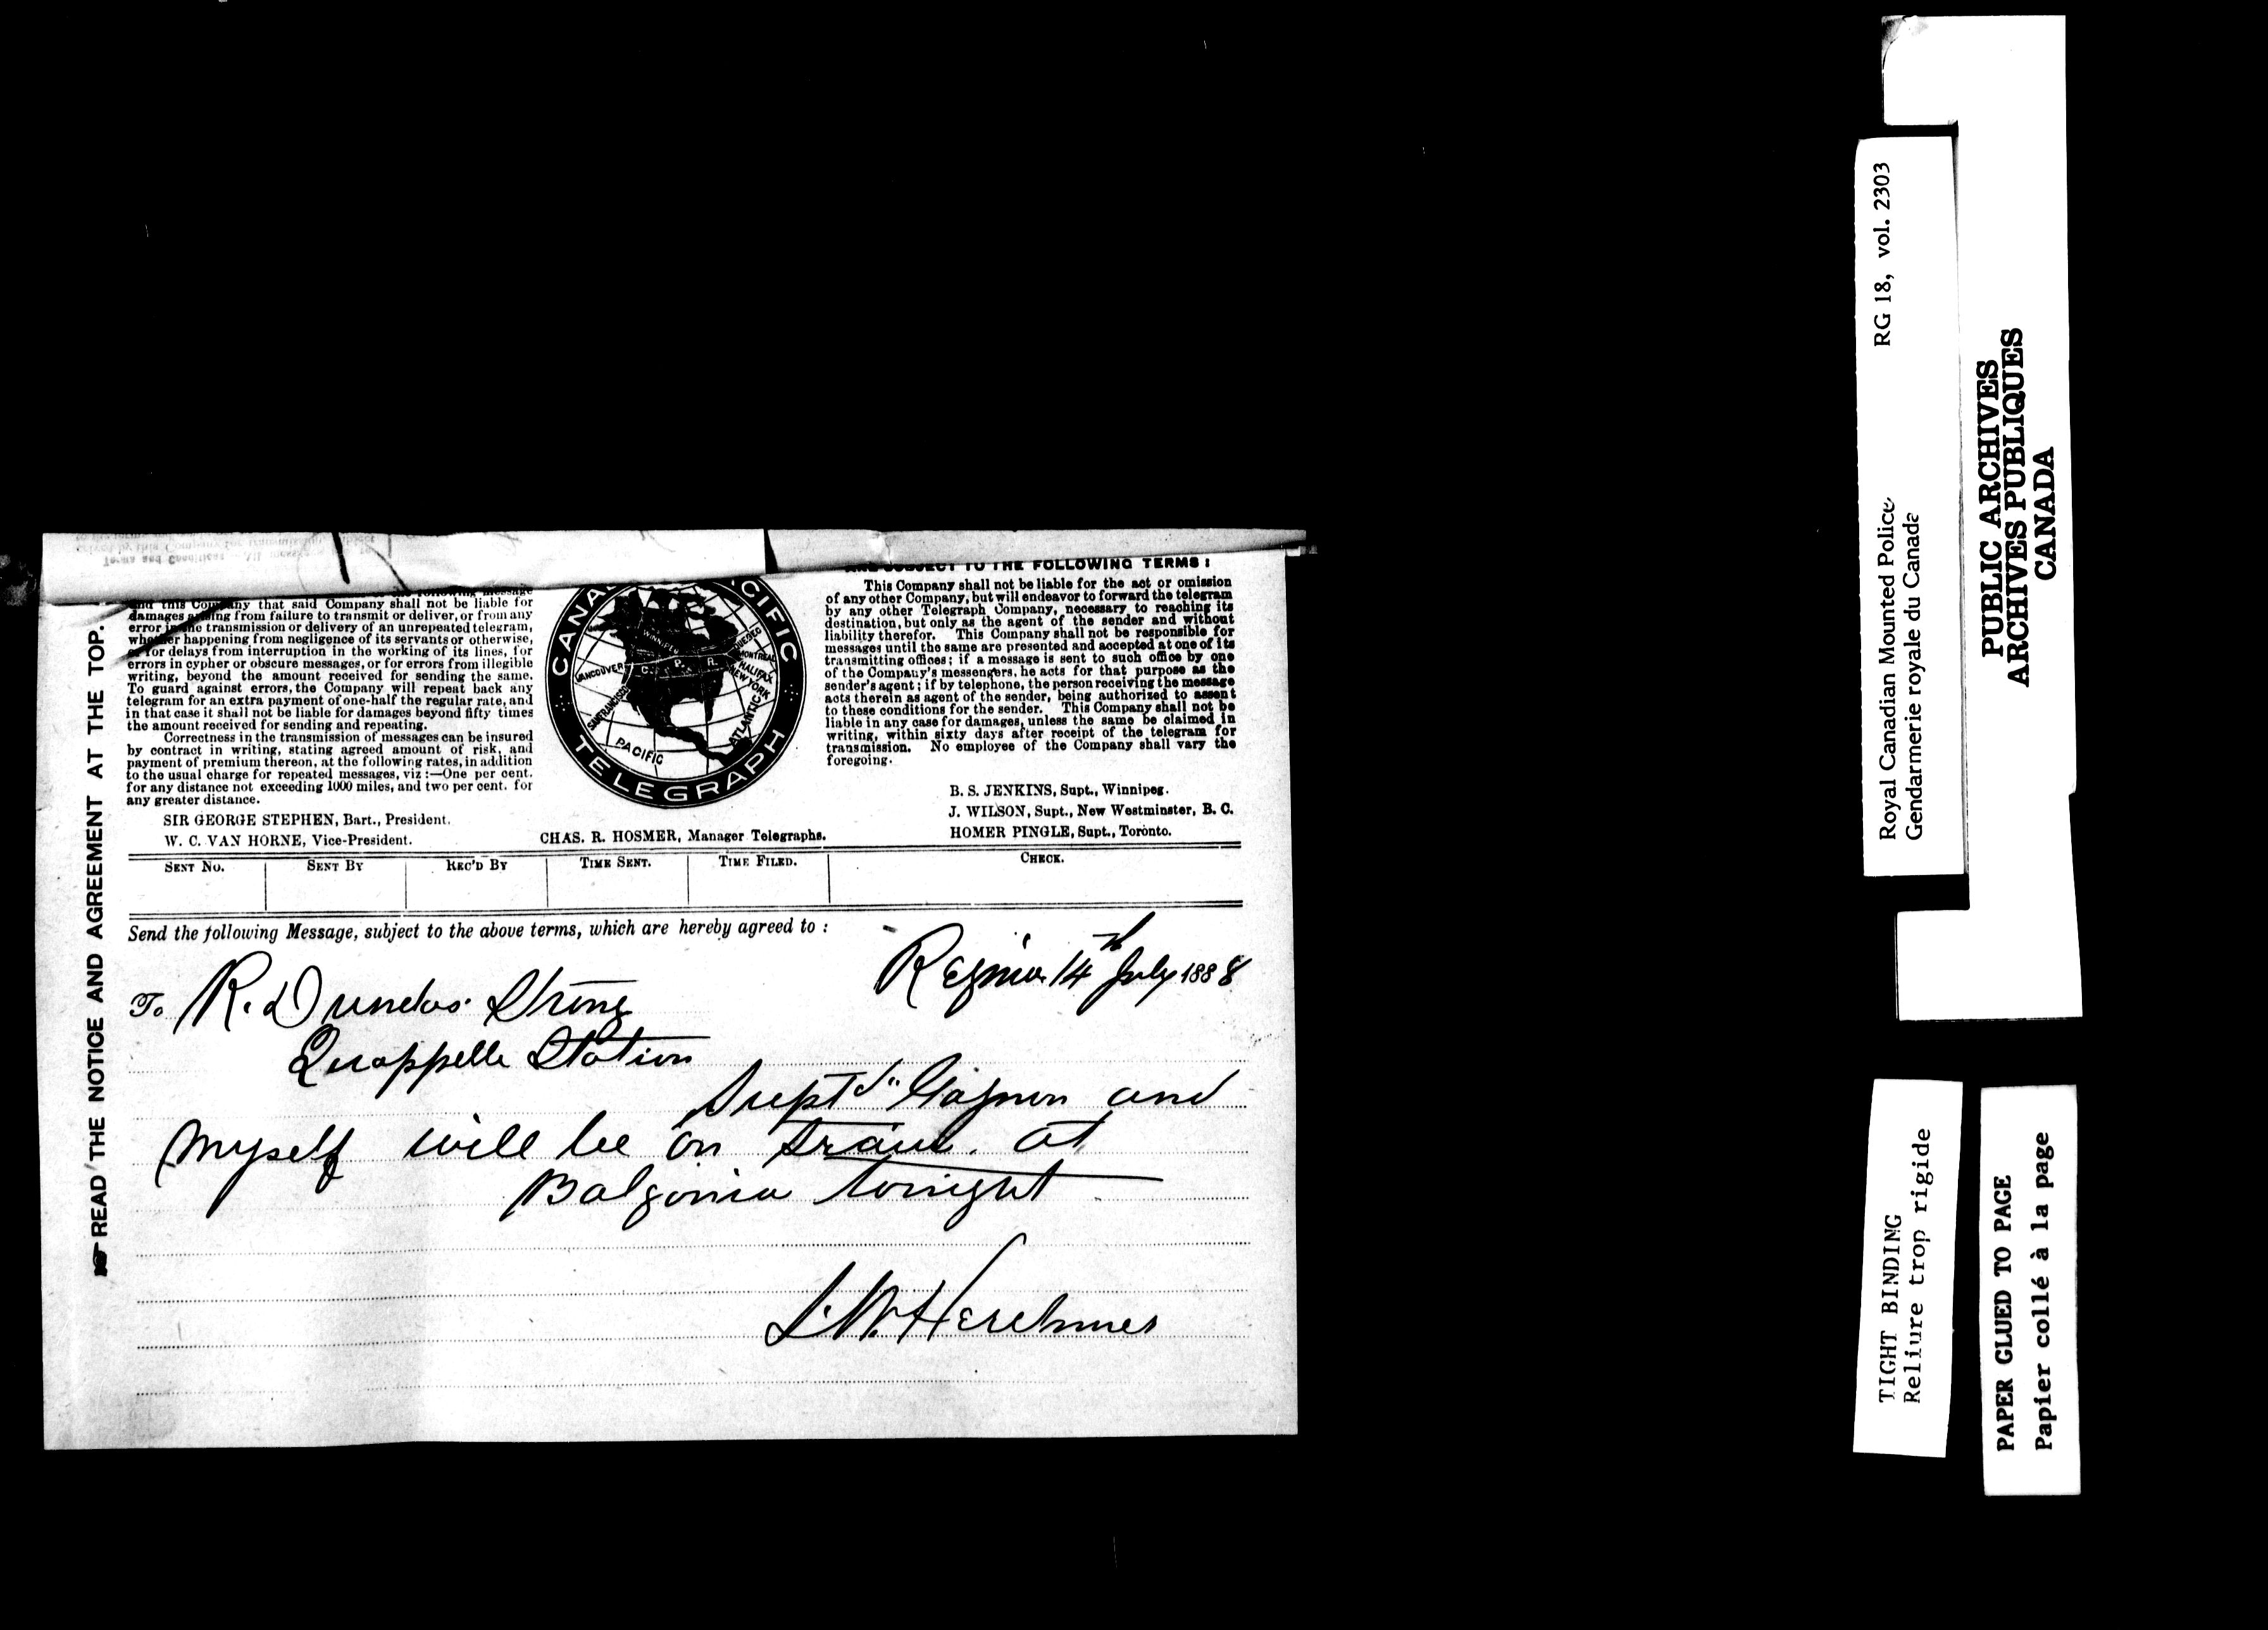 READ THE NOTICE AND AGREEMENT AT THE TOP.
Terms and Conditions All messages
the following message
and this Company that said Company shall not be liable for
damages arising from failure to transmit or deliver, or from any
error in the transmission or delivery of an unrepeated telegram,
whether happening from negligence of its servants or otherwise,
or for delays from interruption in the working of its lines, for
errors in cypher or obscure messages, or for errors from illegible
writing, beyond the amount received for sending the same.
To guard against errors, the Company will repeat back any
telegram for an extra payment of one-half the regular rate, and
in that case it shall not be liable for damages beyond fifty times
the amount received for sending and repeating.
Correctness in the transmission of messages can be insured
by contract in writing, stating agreed amount of risk, and
payment of premium thereon, at the following rates, in addition
to the usual charge for repeated messages, viz :—One per cent.
for any distance not exceeding 1000 miles, and two per cent. for
any greater distance.
SIR GEORGE STEPHEN, Bart., President.
W. C. VAN HORNE, Vice-President.
CANA CIFIC
TELEGRAPH
WINNIPEG
QUEBEC
MONTREAL
HALIFAX
NEW YORK
VANCOUVER
C. P. R.
SAN FRANCISCO
ATLANTIC
PACIFIC
CHAS. R. HOSMER, Manager Telegraphs.
SUBJECT TO THE FOLLOWING TERMS :
This Company shall not be liable for the act or omission
of any other Company, but will endeavor to forward the telegram
by any other Telegraph Company, necessary to reaching its
destination, but only as the agent of the sender and without
liability therefor. This Company shall not be responsible for
messages until the same are presented and accepted at one of its
transmitting offices; if a message is sent to such office by one
of the Company's messengers, he acts for that purpose as the
sender's agent; if by telephone, the person receiving the message
acts therein as agent of the sender, being authorized to assent
to these conditions for the sender. This Company shall not be
liable in any case for damages, unless the same be claimed in
writing, within sixty days after receipt of the telegram for
transmission. No employee of the Company shall vary the
foregoing.
B. S. JENKINS, Supt., Winnipeg.
J. WILSON, Supt., New Westminster, B. C.
HOMER PINGLE, Supt., Toronto.
SENT NO. SENT BY REC'D BY TIME SENT. TIME FILED. CHECK.
Send the following Message, subject to the above terms, which are hereby agreed to :
Regina 14th July 1888
To R. Dundas Strong
Quappelle Station
Suptd Gagnon and
myself will be on train at
Balgonia tonight
L.W. Herchmer
Royal Canadian Mounted Police RG 18, vol. 2303
Gendarmerie royale du Canada
PUBLIC ARCHIVES
ARCHIVES PUBLIQUES
CANADA
TIGHT BINDING
Reliure trop rigide
PAPER GLUED TO PAGE
Papier collé à la page